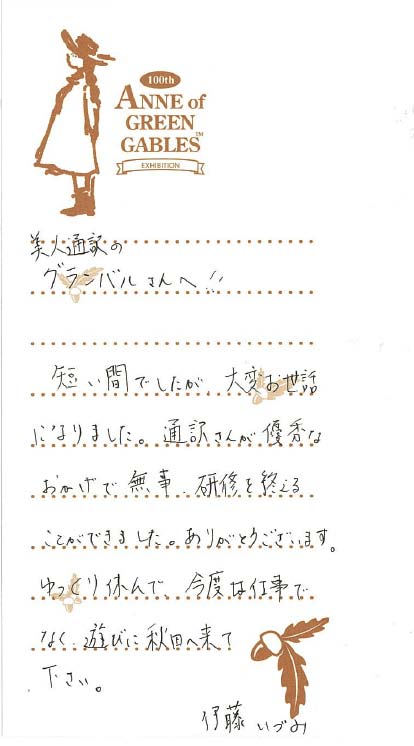 100th
ANNE of
GREEN
GABLES™
EXHIBITION
美人通訳の
グランバルさんへ!!
短い間でしたが、大変お世話
になりました。通訳さんが優秀な
おかげで無事、研修を終える
ことができました。ありがとうございます。
ゆっくり休んで、今度は仕事で
なく、遊びに秋田へ来て
下さい。
伊藤いづみ